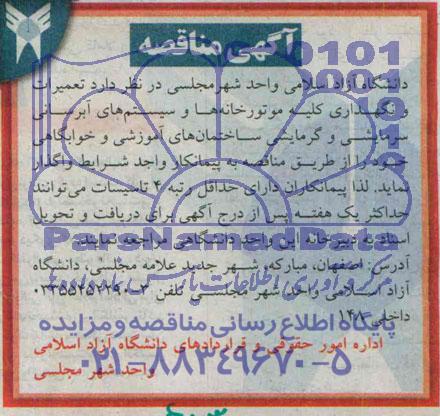 آگهی مناقصه
دانشگاه آزاد اسلامی واحد شهرمجلسی در نظر دارد تعمیرات
و نگهداری کلیه موتورخانه‌ها و سیستم‌های آبرسانی
سرمایشی و گرمایشی ساختمان‌های آموزشی و خوابگاهی
خود را از طریق مناقصه به پیمانکار واجد شرایط واگذار
نماید. لذا پیمانکاران دارای حداقل رتبه ۴ تاسیسات می‌توانند
حداکثر یک هفته پس از درج آگهی برای دریافت و تحویل
اسناد به دبیرخانه این واحد دانشگاهی مراجعه نمایند.
آدرس: اصفهان، مبارکه، شهر جدید علامه مجلسی، دانشگاه
آزاد اسلامی واحد شهر مجلسی تلفن
داخلی ۱۴۸
اداره امور حقوقی و قراردادهای دانشگاه آزاد اسلامی
واحد شهر مجلسی
ParsNamadData
پایگاه اطلاع رسانی مناقصه و مزایده
۰۲۱-۸۸۳۴۹۶۷۰-۵